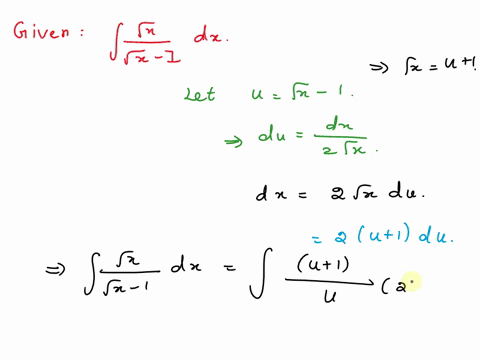 Given: ∫ √x / (√x - 1) dx.
⇒ √x = u+1.
Let u = √x - 1.
⇒ du = dx / 2√x.
dx = 2√x du.
= 2 (u+1) du.
⇒ ∫ √x / (√x - 1) dx = ∫ (u+1) / u (2